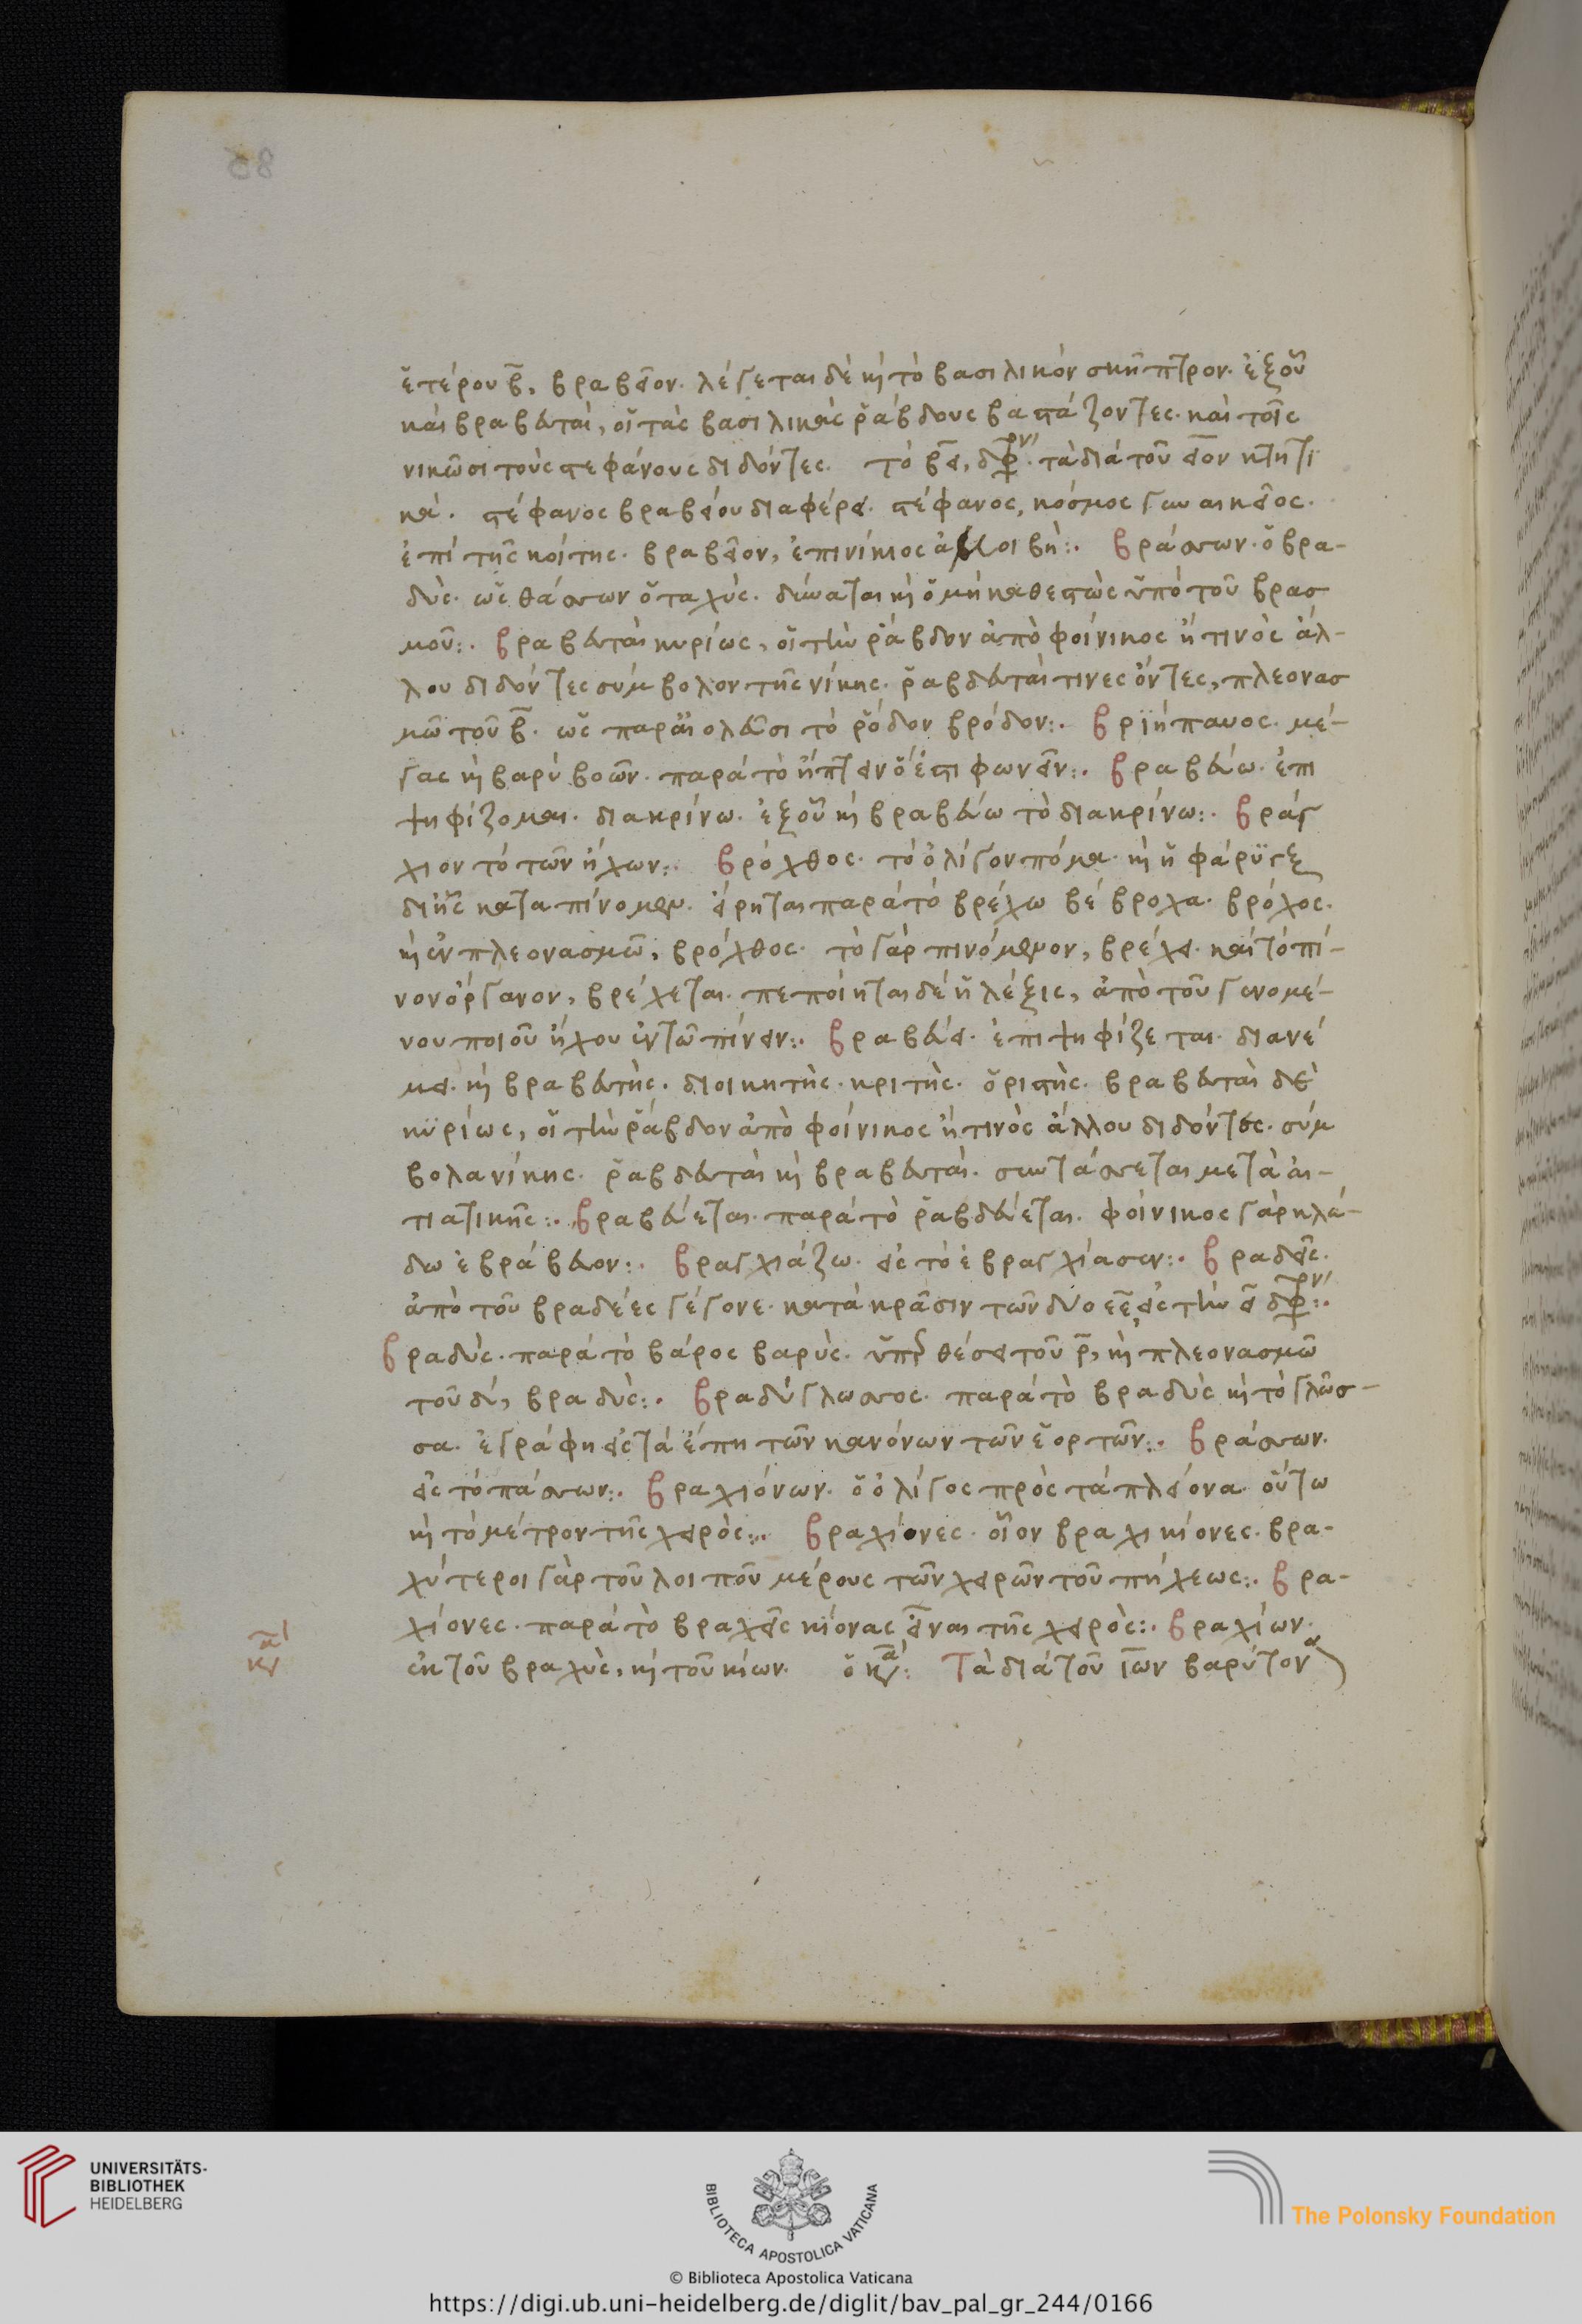 85
ἑτέρου β̄, βραβεῖον. λέγεται δὲ κ̀ τὸ βασιλικὸν σκῆπτρον. ἐξ οὗ
καὶ βραβευταὶ, οἱ τὰς βασιλικὰς ῥάβδους βαστάζοντες. καὶ τοῖς
νικῶσι τοὺς στεφάνους διδόντες. τὸ βει, τὰ διὰ τοῦ ειον κτητι
κά. στέφανος βραβείου διαφέρει. στέφανος, κόσμος γυναικεῖος.
ἐπὶ τῆς κοίτης. βραβεῖον, ἐπινίκιος ἀμοιβὴ:. βράσσων. ὁ βρα-
δύς. ὡς θάσσων ὁ ταχύς. δύναται κ̀ ὁ μὴ καθεστὼς ὑπὸ τοῦ βρασ
μοῦ:. βραβευταὶ κυρίως, οἱ τὴν ῥάβδον ἀπὸ φοίνικος ἤ τινὸς ἄλ-
λου διδόντες σύμβολον τῆς νίκης. ῥαβδευταί τινες ὄντες, πλεονασ
μῶ τοῦ β̄. ὡς παρ' αἰολεῦσι τὸ ῥόδον βρόδον:. βριήπαυος. μέ-
γας κ̀ βαρὺ βοῶν. παρὰ τὸ ἠπύειν ὅ ἐστι φωνεῖν:. βραβεύω. ἐπι
ψηφίζομαι. διακρίνω. ἐξ οὗ κ̀ βραβεύω τὸ διακρίνω:. βράγ
χιον τὸ τῶν ἤχων:. βρόχθος. τὸ ὀλίγον πόμα. κ̀ ἡ φάρυγξ
δι' ἧς καταπίνομεν. εἴρηται παρὰ τὸ βρέχω βέβροχα. βρόχος.
κ̀ ἐν πλεονασμῶ, βρόχθος. τὸ γὰρ πινόμενον, βρέχει. καὶ τὸ πί-
νον ὄργανον, βρέχεται. πεποίηται δὲ ἡ λέξις, ἀπὸ τοῦ γενομέ-
νου ποιοῦ ἤχου ἐν τῶ πίνειν:. βραβεύει. ἐπιψηφίζεται. διανέ
μει. κ̀ βραβευτὴς. διοικητὴς. κριτὴς. ὁριστὴς. βραβευταὶ δὲ
κυρίως, οἱ τὴν ῥάβδον ἀπὸ φοίνικος ἤ τινὸς ἄλλου διδόντες. σύμ
βολα νίκης. ῥαβδευταὶ κ̀ βραβευταί. συντάσσεται μετὰ αἰ-
τιατικῆς:. βραβεύεται. παρὰ τὸ ῥαβδεύεται. φοίνικος γὰρ κλά-
δω ἐβράβευον:. βραγχιάζω. εἰς τὸ ἐβραγχίασεν:. βραδεῖς.
ἀπὸ τοῦ βραδέες γέγονε. κατὰ κρᾶσιν τῶν δύο εε εἰς τὴν ει
βραδύς. παρὰ τὸ βάρος βαρύς. ὑπερθέσει τοῦ ρ̄, κ̀ πλεονασμῶ
τοῦ δ, βραδύς:. βραδύγλωσσος. παρὰ τὸ βραδὺς κ̀ τὸ γλῶσ-
σα. ἐγράφη εἰς τὰ ἔπη τῶν κανόνων τῶν ἑορτῶν:. βράσσων.
εἰς τὸ πάσσων:. βραχιόνων. ὁ ὀλίγος πρὸς τὰ πλείονα. οὕτω
κ̀ τὸ μέτρον τῆς χειρὸς:. βραχίονες. οἷον βραχικίονες. βρα-
χύτεροι γὰρ τοῦ λοιποῦ μέρους τῶν χειρῶν τοῦ πήχεως:. βρα-
χίονες. παρὰ τὸ βραχεῖς κίονας εἶναι τῆς χειρὸς:. βραχίων.
ἐκ τοῦ βραχὺς, κ̀ τοῦ κίων. ὁ κα: Τὰ διὰ τοῦ ιων βαρύτονα
UNIVERSITÄTS-
BIBLIOTHEK
HEIDELBERG
BIBLIOTECA APOSTOLICA VATICANA
The Polonsky Foundation
© Biblioteca Apostolica Vaticana
https://digi.ub.uni-heidelberg.de/diglit/bav_pal_gr_244/0166